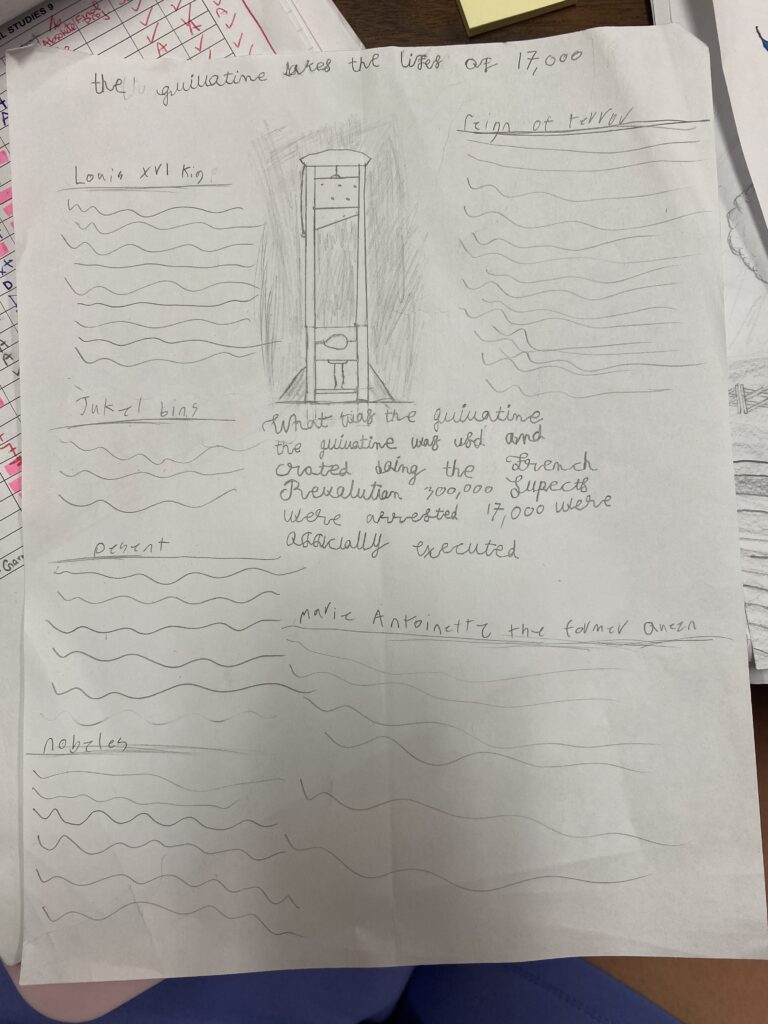 L STUDIES 9
the guiuatine takes the lifes of 17,000
Louis XVI King
reign of terror
Jukel bins
What was the guiuatine
the guiuatine was usd and
crated duing the French
Revalution 300,000 Supects
were arrested 17,000 were
offically executed
pesent
Marie Antoinette the former queen
nobeles